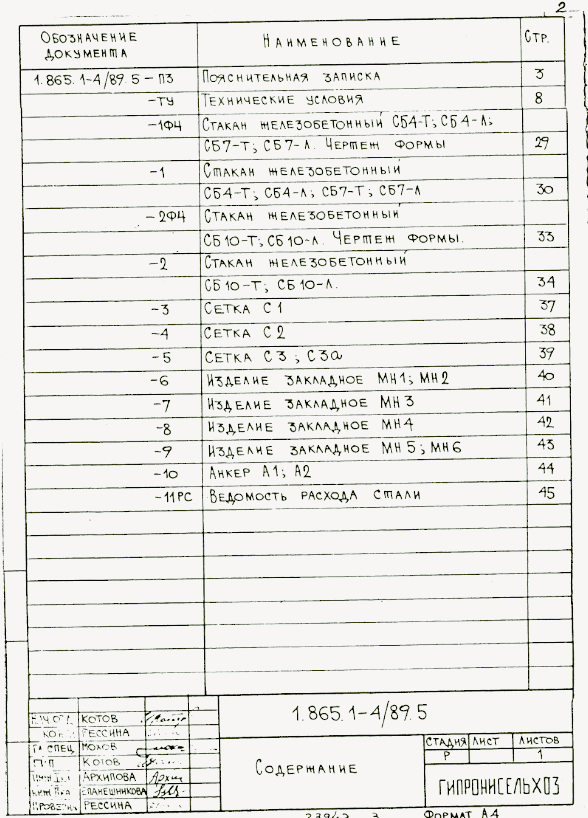 2
Обозначение документа Наименование Стр.
1.865.1-4/89.5-ПЗ Пояснительная записка 3
-ТУ Технические условия 8
-1Ф4 Стакан железобетонный СБ4-Т; СБ4-Л;
СБ7-Т; СБ7-Л. Чертеж формы 29
-1 Стакан железобетонный
СБ4-Т; СБ4-Л; СБ7-Т; СБ7-Л 30
-2Ф4 Стакан железобетонный
СБ10-Т; СБ10-Л. Чертеж формы. 33
-2 Стакан железобетонный
СБ10-Т; СБ10-Л. 34
-3 Сетка С1 37
-4 Сетка С2 38
-5 Сетка С3; С3а 39
-6 Изделие закладное МН1; МН2 40
-7 Изделие закладное МН3 41
-8 Изделие закладное МН4 42
-9 Изделие закладное МН5; МН6 43
-10 Анкер А1; А2 44
-11РС Ведомость расхода стали 45
1.865.1-4/89.5
Котов
Рессина
Гл. спец. Мохов
Котов
Архипова
Епанешникова
Рессина
Содержание
Стадия Лист Листов
Р 1
ГИПРОНИСЕЛЬХОЗ
Формат А4